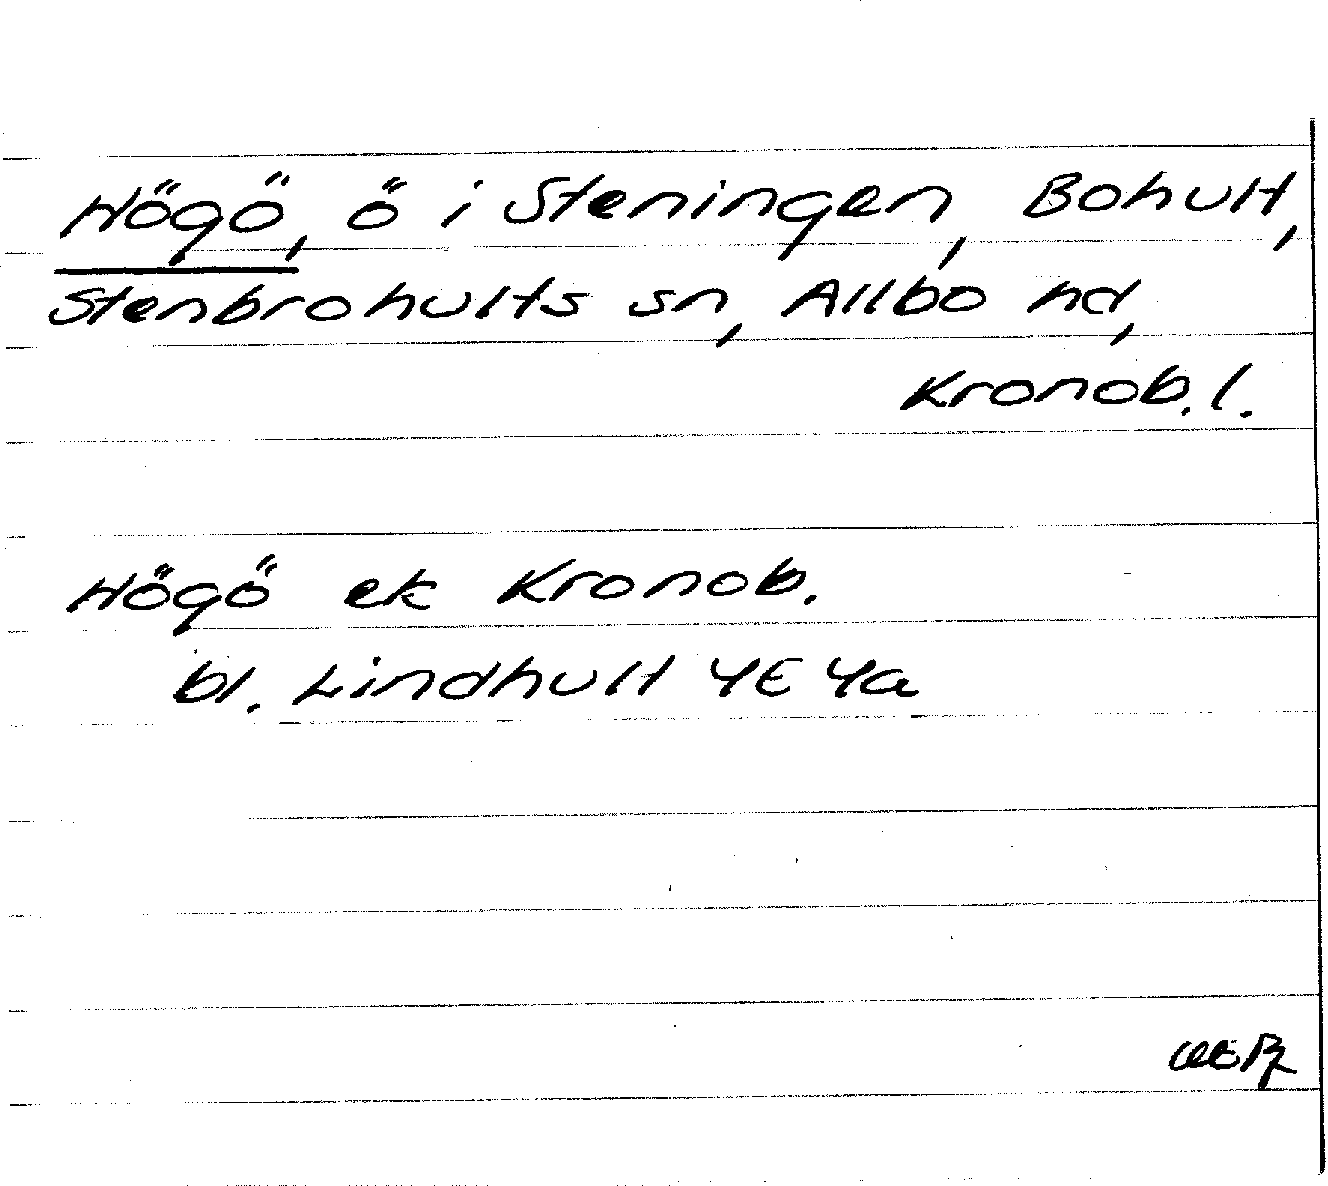 Högö, ö i Steningen, Bohult,
Stenbrohults sn, Allbo hd,
Kronob. l.
Högö ek Kronob.
bl. Lindhult 4E 4a